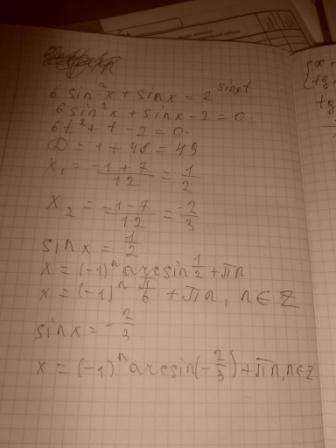 6 sin²x + sin x = 2 sin x t
6 sin²x + sin x - 2 = 0.
6t² + t - 2 = 0.
D = 1 + 48 = 49
x₁ = -1+7/12 = 1/2
x₂ = -1-7/12 = -2/3
sin x = 1/2
x = (-1)ⁿ arcsin 1/2 + πn
x = (-1)ⁿ π/6 + πn, n ∈ Z
sin x = -2/3
x = (-1)ⁿ arcsin(-2/3) + πn, n ∈ Z